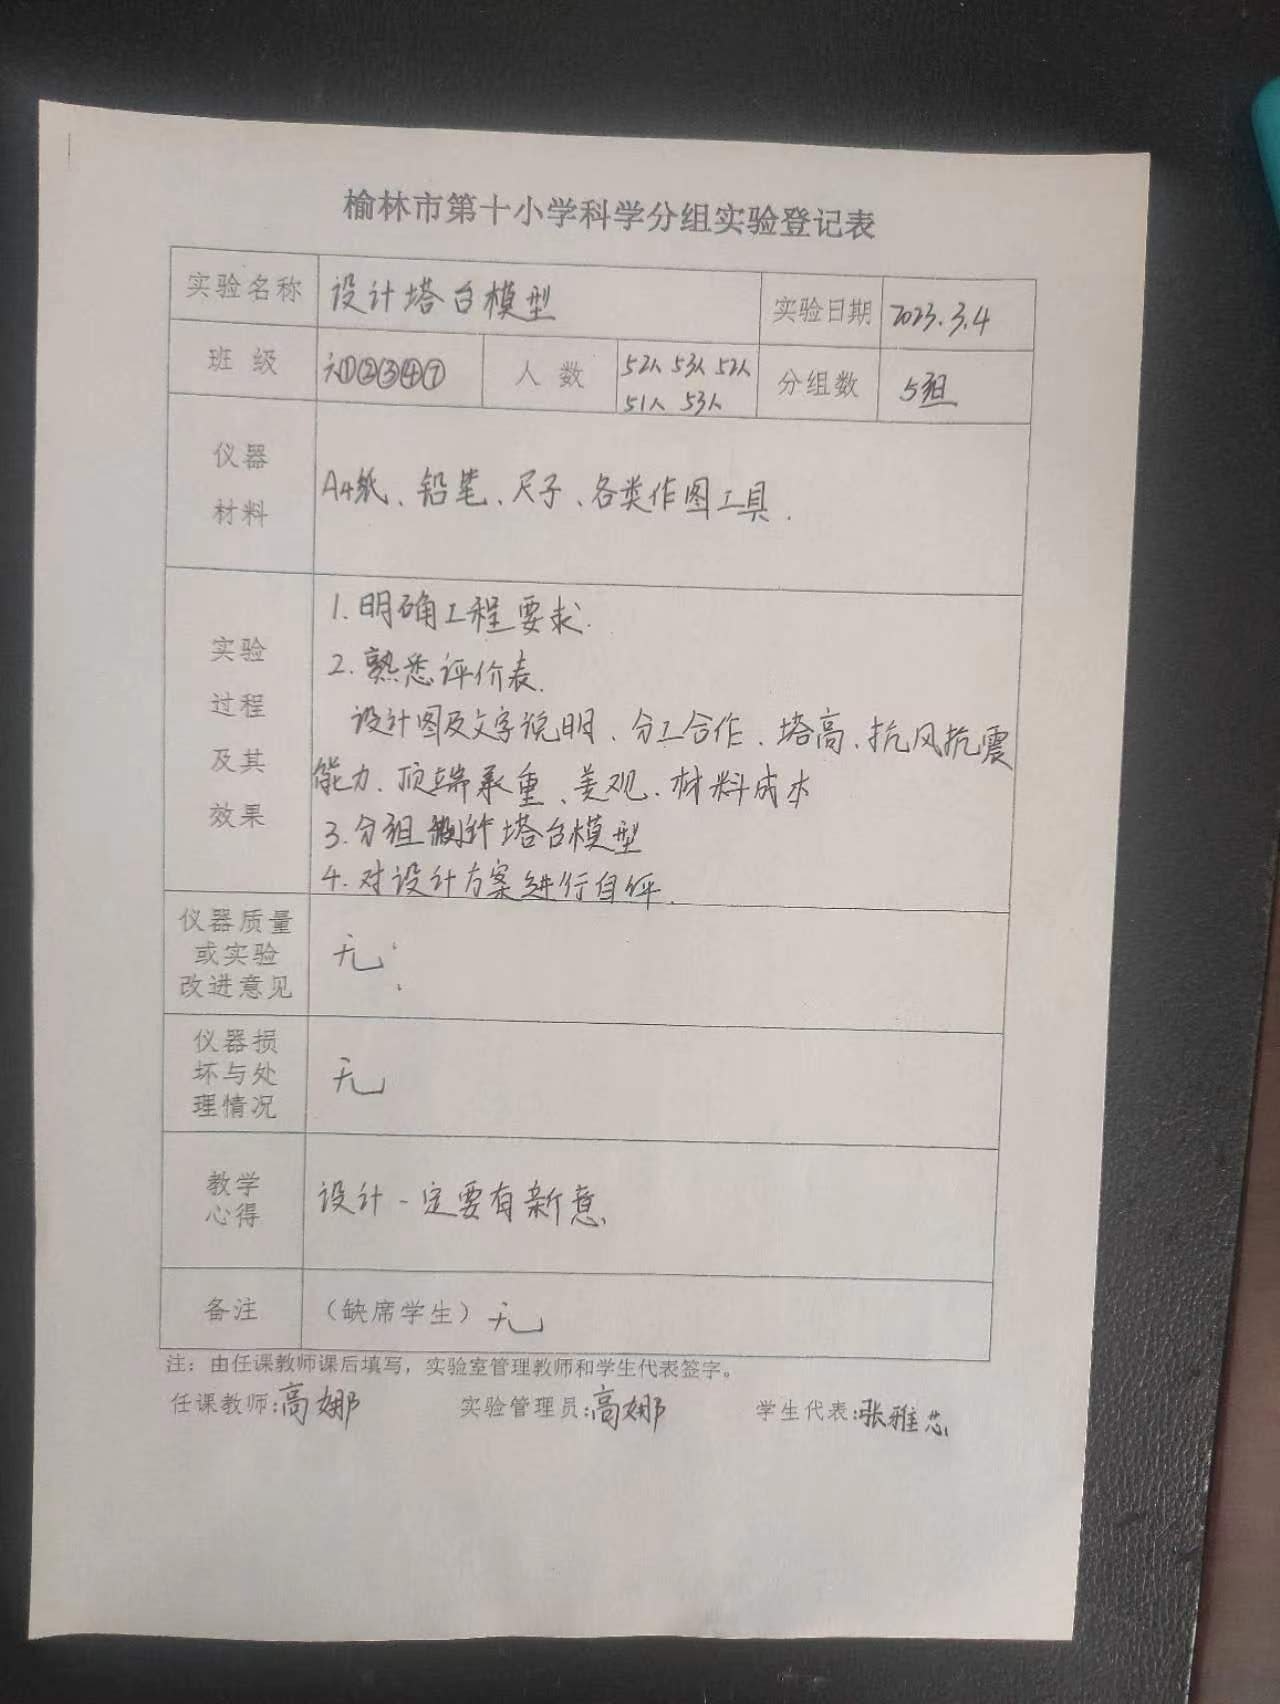 榆林市第十小学科学分组实验登记表
实验名称 设计塔台模型 实验日期 2023.3.4
班 级 六①②③④⑦ 人 数 52人 53人 52人 51人 53人 分组数 5组
仪器
材料
A4纸、铅笔、尺子、各类作图工具.
实验
过程
及其
效果
1.明确工程要求.
2.熟悉评价表.
设计图及文字说明、分工合作、塔高、抗风抗震
能力、顶端承重、美观、材料成本
3.分组 塔台模型
4.对设计方案进行自评.
仪器质量
或实验
改进意见
无
仪器损
坏与处
理情况
无
教学
心得
设计一定要有新意.
备注 （缺席学生）无
注：由任课教师课后填写，实验室管理教师和学生代表签字。
任课教师:高娜 实验管理员:高娜 学生代表:张雅芯